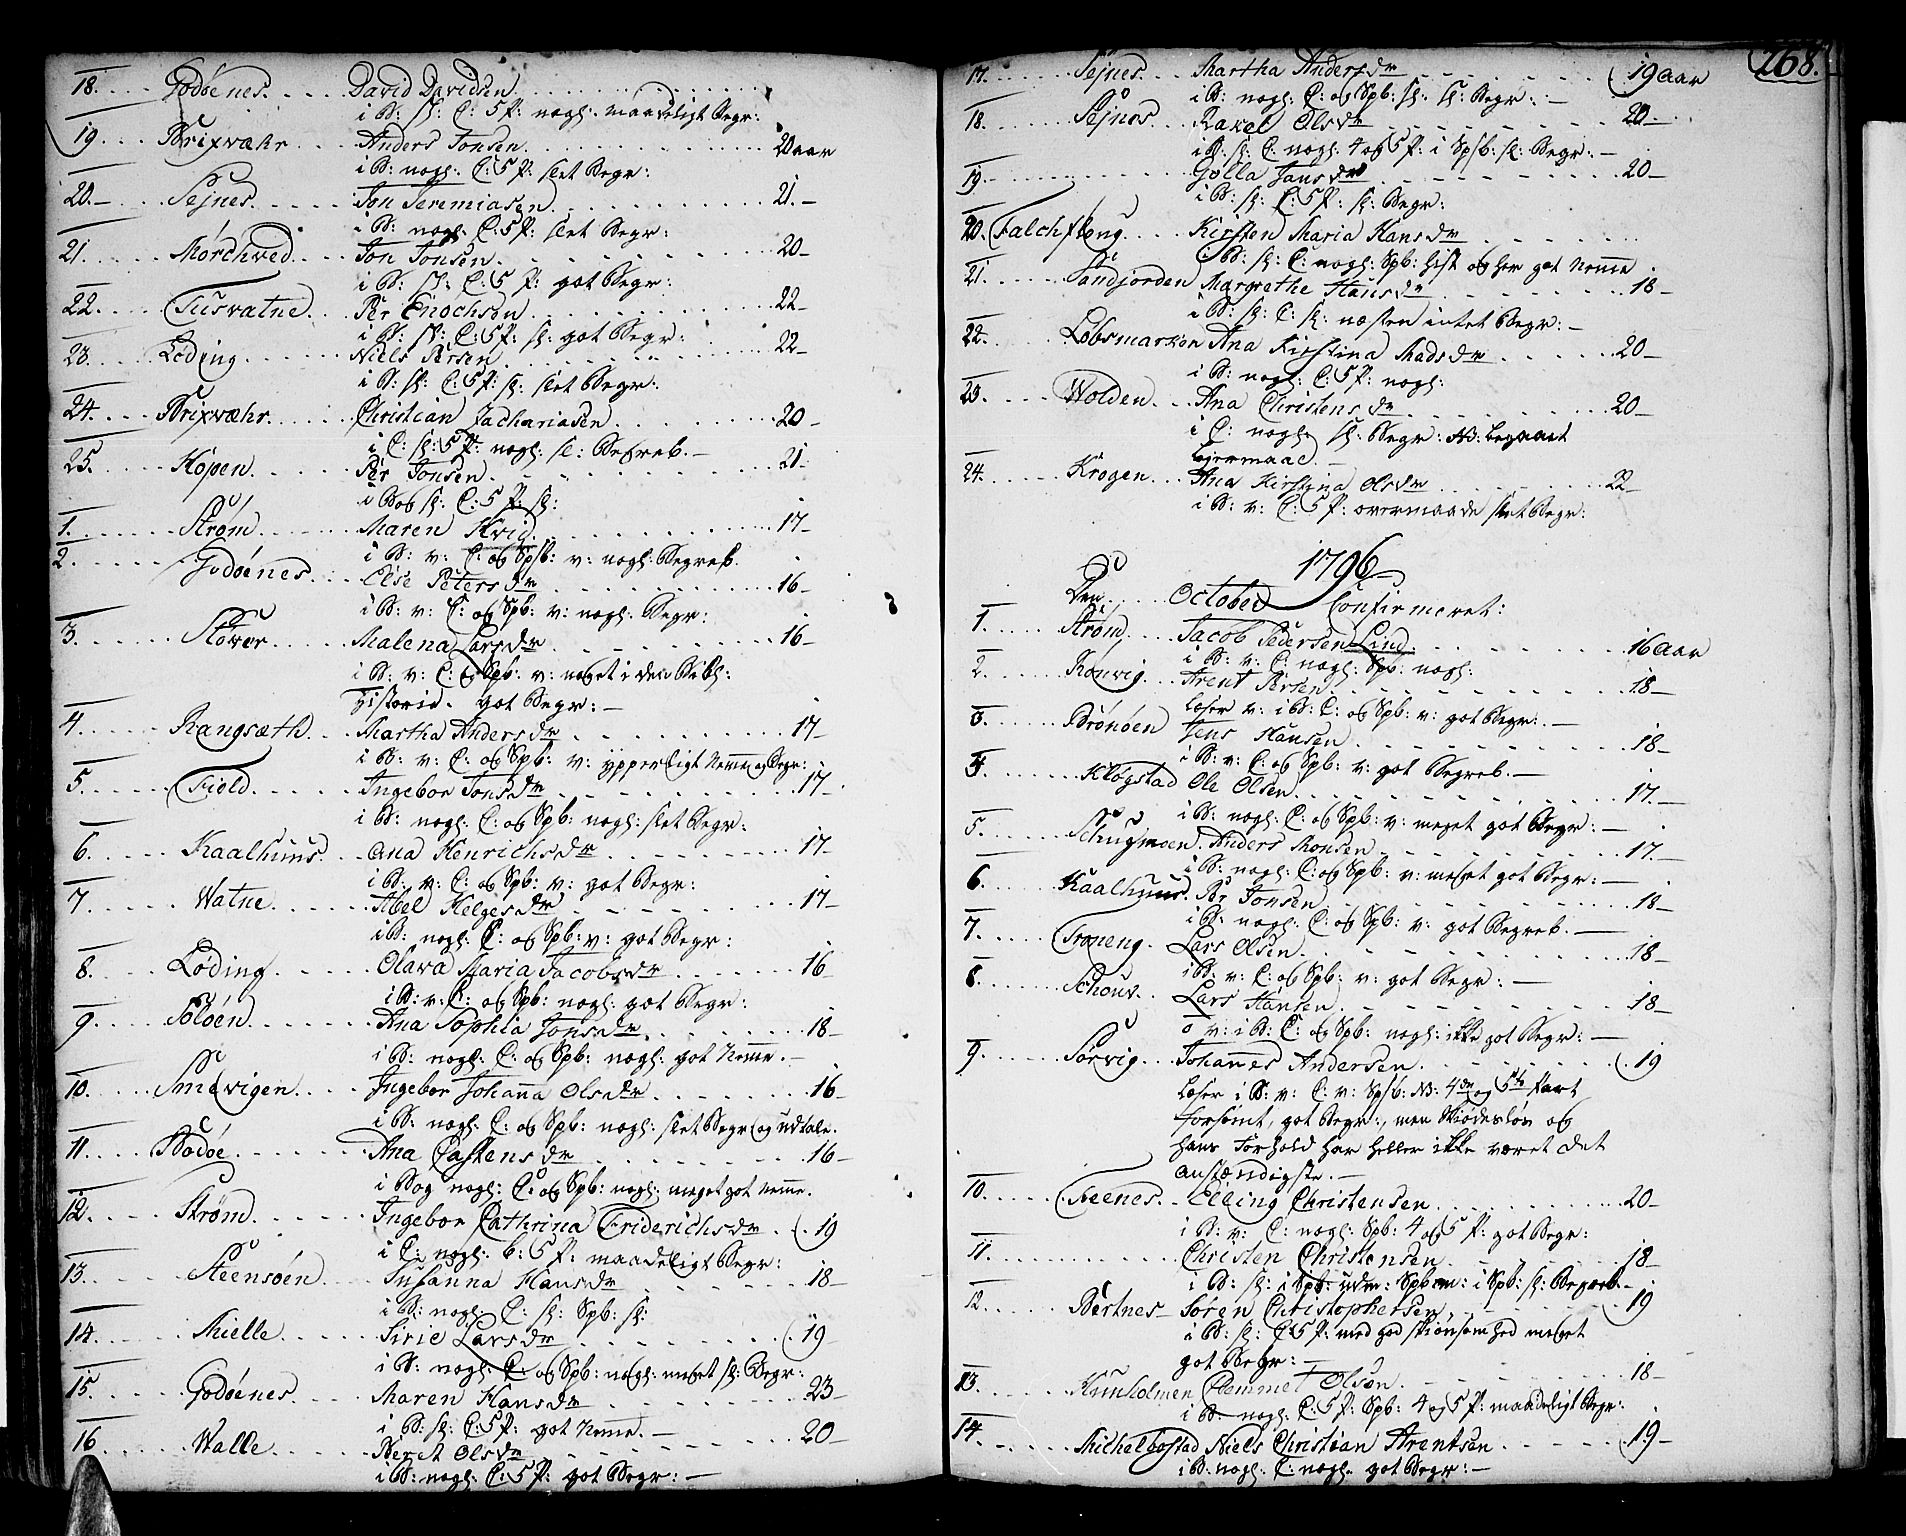 18. Godøenes. David Davidsen
i B: sl: C: 5 P: nogl. maadeligt Begr:
19. Brixvæhr Anders Jonsen 20 aar
i B: nogl: C: 5 P: slet Begr:
20. Sejnes. Jon Jeremiasen 21.
i B: nogl: C: 5 P: slet Begr:
21. Mörchved Jon Jonsen 20
i B: sl: C: 5 P: got Begr:
22. Tusvatne Per Enochsen 22
i B: sl: C: 5 P: sl: got Begr:
23. Løding Niels Persen 22
i B: sl: C: 5 P: sl: slet Begr:
24. Brixvæhr Christian Zachariasen 20
i C: sl: 5 P: nogl: sl: Begreb.
25. Kopen Per Jonsen 21
i Bog sl: C: 5 P: sl:
1. Strøm Maren Hvid 17
i B: v: C: og Spb: v: nogl: Begreb.
2. Godøenes Else Petersdr 16
i B: v: C: og Spb: v: nogl. Begr:
3. Støver Malena Larsdr 16
i B: v: C: og Spb: v: noget i den Bibl:
Historie. got Begr:
4. Rangsæth Martha Andersdr 17
i B: v: C: og Spb: v: ypperligt Nemme og Begr:
5. Field Ingebor Jonsdr 17
i B: nogl: C: og Spb: nogl: slet Begr:
6. Kaalhuus Ana Henrichsdr 17
i B: v: C: og Spb: v: got Begr:
7. Watne Abel Helgesdr 17
i B: nogl: C: og Spb: v: got Begr:
8. Løding Olava Maria Jacobsdr 16
i B: v: C: og Spb: nogl: got Begr:
9. Soløen Ana Sophia Jonsdr 18
i B: nogl: C: og Spb: nogl: got Nemme.
10. Smevigen Ingebor Johanna Olsdr 16
i B: nogl: C: og Spb: nogl: slet Begr og udtale.
11. Bodøe Ana Castensdr 16
i Bog nogl: C: og Spb: nogl: meget got Nemme.
12. Strøm Ingebor Cathrina Friderichsdr 19
i C: nogl: b: 5 P: maadeligt Begr:
13. Steensöen Susanna Hansdr 18
i B: nogl: C: sl: Spb: sl:
14. Mielle Sirie Larsdr 19
i B: nogl: C: og Spb: nogl: meget sl: Begr:
15. Godøenes Maren Hansdr 23
i B: sl: C: 5 P: got Nemme.
16. Walle Beret Olsdr 20
i B: nogl: C: 5 P: got Begr:
268.
17. Sejnes Martha Andersdr 19 aar
i B: nogl: C: og Spb: sl: sl: Begr:
18. Sejnes Rakel Olsdr 20
i B: sl: C: nogl: 4 og 5 P: i Spb: sl: Begr:
19. Golla Jansdr 20
i B: sl: C: 5 P: sl: Begr:
20. Falchfleng Kirsten Maria Hansdr
i B: sl: C: nogl: Spb: hist og her got Nemme
21. Sandjorden Margrethe Hansdr 18
i B: sl: C: sl: næsten intet Begr:
22. Løbsmarken Ana Kirstina Madsdr 20
i B: nogl: C: 5 P: nogl:
23. Wolden Ana Christensdr 20
i C: nogl: sl: Begr: NB: begaaet
Lejermaal.
24. Krogen Ana Kirstina Olsdr 22
i B: v: C: 5 P: overmaade slet Begr:
1796
Den October Confirmeret:
1. Strøm Jacob Pedersen Lind 16 aar
i B: v: C: nogl: Spb: nogl:
2. Rønvig Arent Persen 18
læser v: i B: C: og Spb: v: got Begr:
3. Brönöen Jens Hansen 18
i B: v: C: og Spb: v: got Begreb.
4. Klögstad Ole Olsen 17.
i B: nogl: C: og Spb: v: meget got Begr:
5. Schugmoen Anders Monsen 17.
i B: nogl: C: og Spb: v: meget got Begr:
6. Kaalhuus Per Jonsen 18
i B: nogl: C: og Spb: v: got Begreb.
7. Troneng Lars Olsen 18
i B: v: C: og Spb: v: got Begr:
8. Schouv Lars Hansen 18
v: i B: C: og Spb: nogl: ikke got Begr:
9. Sørvig Johannes Andersen 19
læser i B: v: C: v: Spb: NB: 4de og 5te Part
forsömt, got Begr:, men Skiödesløs og
hans Forhold har heller ikke været det
anstændigste.
10. Seenes Elling Christensen 20
i B: v: C: nogl: Spb: 4 og 5 P: got Begr:
11. Christen Christensen 18
i B: sl: i Spb: udm: Spbm: i Spb: sl: Begreb.
12. Bertnes Søren Christophersen 19
i B: sl: C: 5 P: med god skiönsomhed meget
got Begr:
13. Hunholmen Clemmet Olsen 18
i B: nogl: C: 5 P: Spb: 4 og 5 P: maadeligt Begr:
14. Michelbostad Niels Christian Arentsen 19
i B: nogl: C: nogl: got Begr: